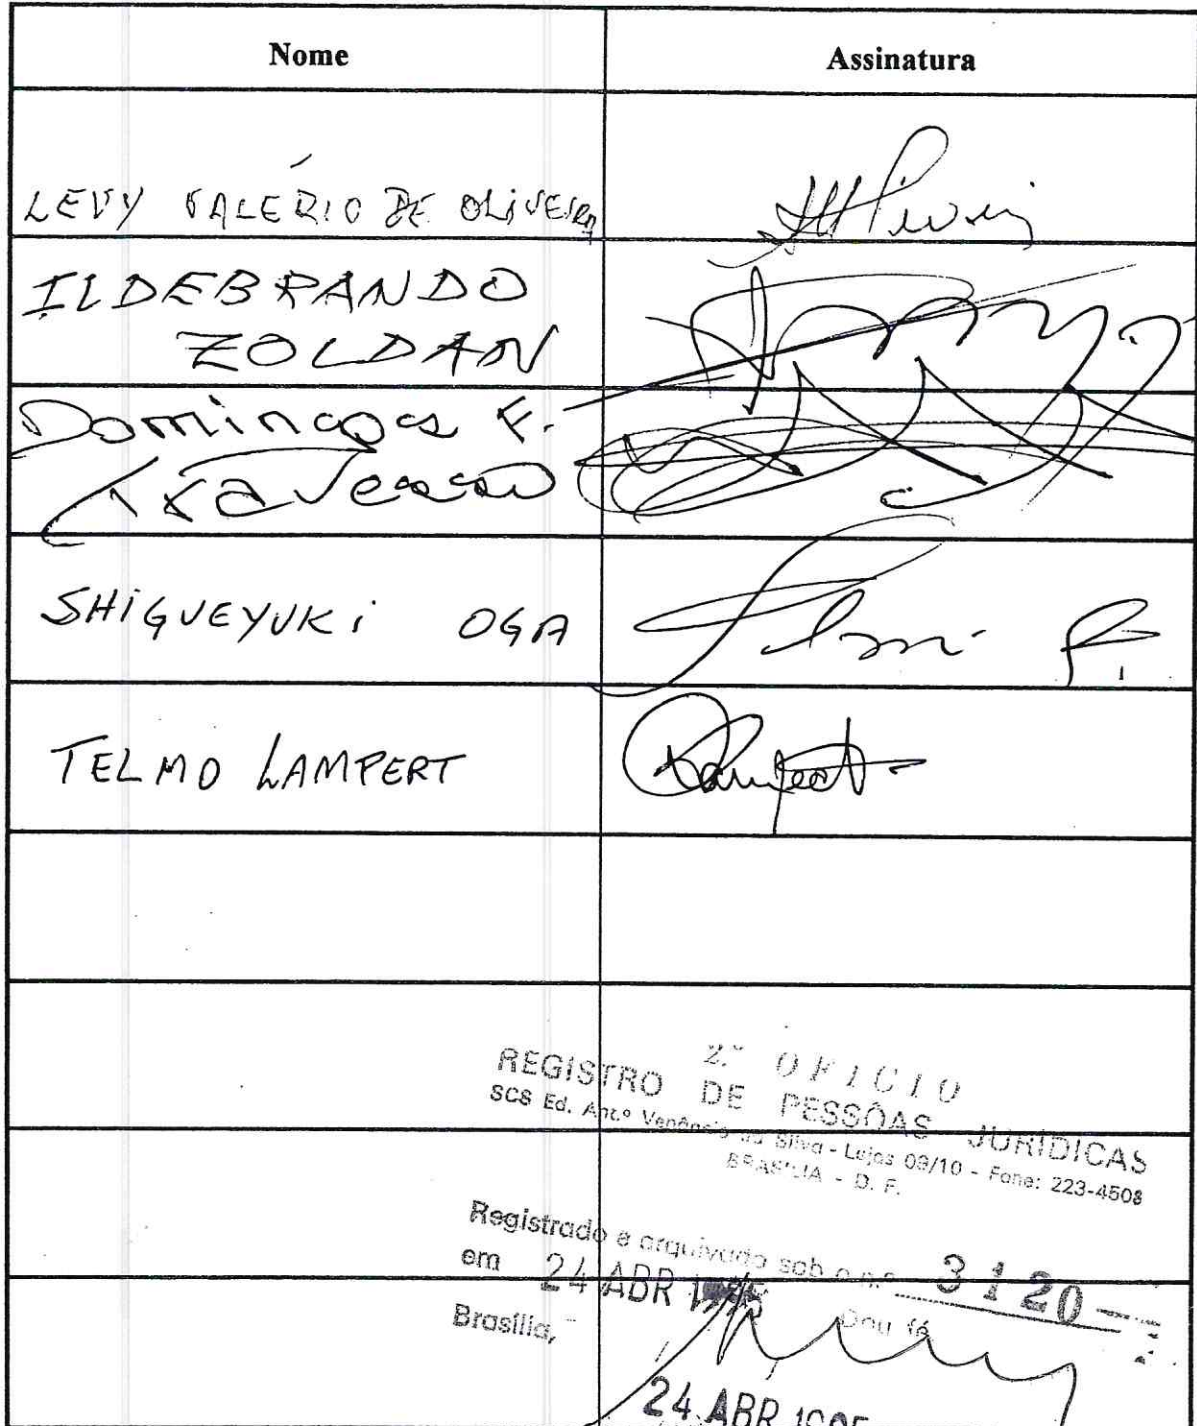 Nome Assinatura
LEVY VALÉRIO DE OLIVEIRA
ILDEBRANDO
ZOLDAN
Domingos F.
SHIGUEYUKI OGA
TELMO LAMPERT
2.º OFICIO
REGISTRO DE PESSÔAS JURÍDICAS
SCS Ed. Ant.º Venâncio da Silva - Lojas 09/10 - Fone: 223-4508
BRASÍLIA - D. F.
Registrado e arquivado sob o n.º 3120
em 24 ABR 1995 Dou fé
Brasília,
24 ABR 1995